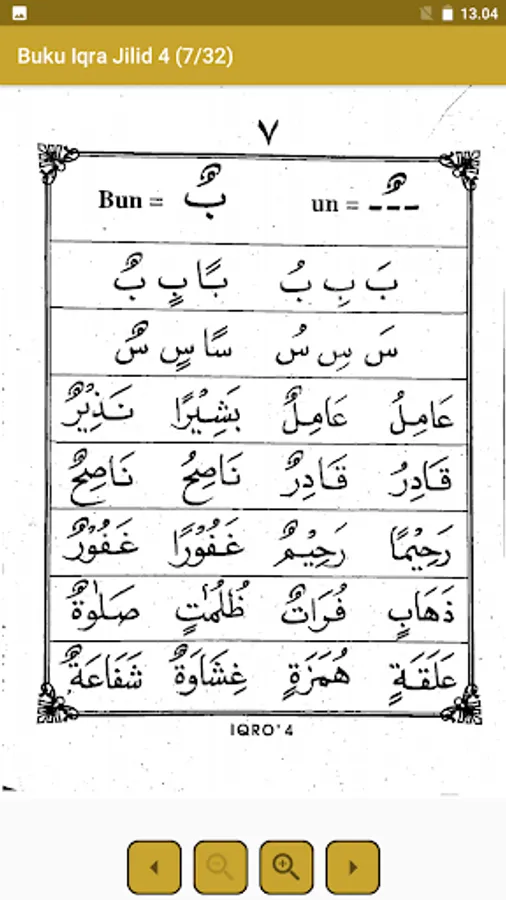 13.04
Buku Iqra Jilid 4 (7/32)
٧
ـٌ = un بٌ = Bun
بَ بِ بُ بًا بٍ بٌ
سَ سِ سُ سًا سٍ سٌ
عَامِلُ عَامِلٌ بَشِيْرًا نَذِيْرٌ
قَادِرُ قَادِرٌ نَاصِحُ نَاصِحٌ
رَحِيْمًا رَحِيْمٌ غَفُوْرًا غَفُوْرٌ
ذَهَابٍ فُرَاتٌ ظُلُمٰتٍ صَلٰوةٌ
عَلَقَةٍ هُمَزَةٍ غِشَاوَةٌ شَفَاعَةٌ
IQRO' 4